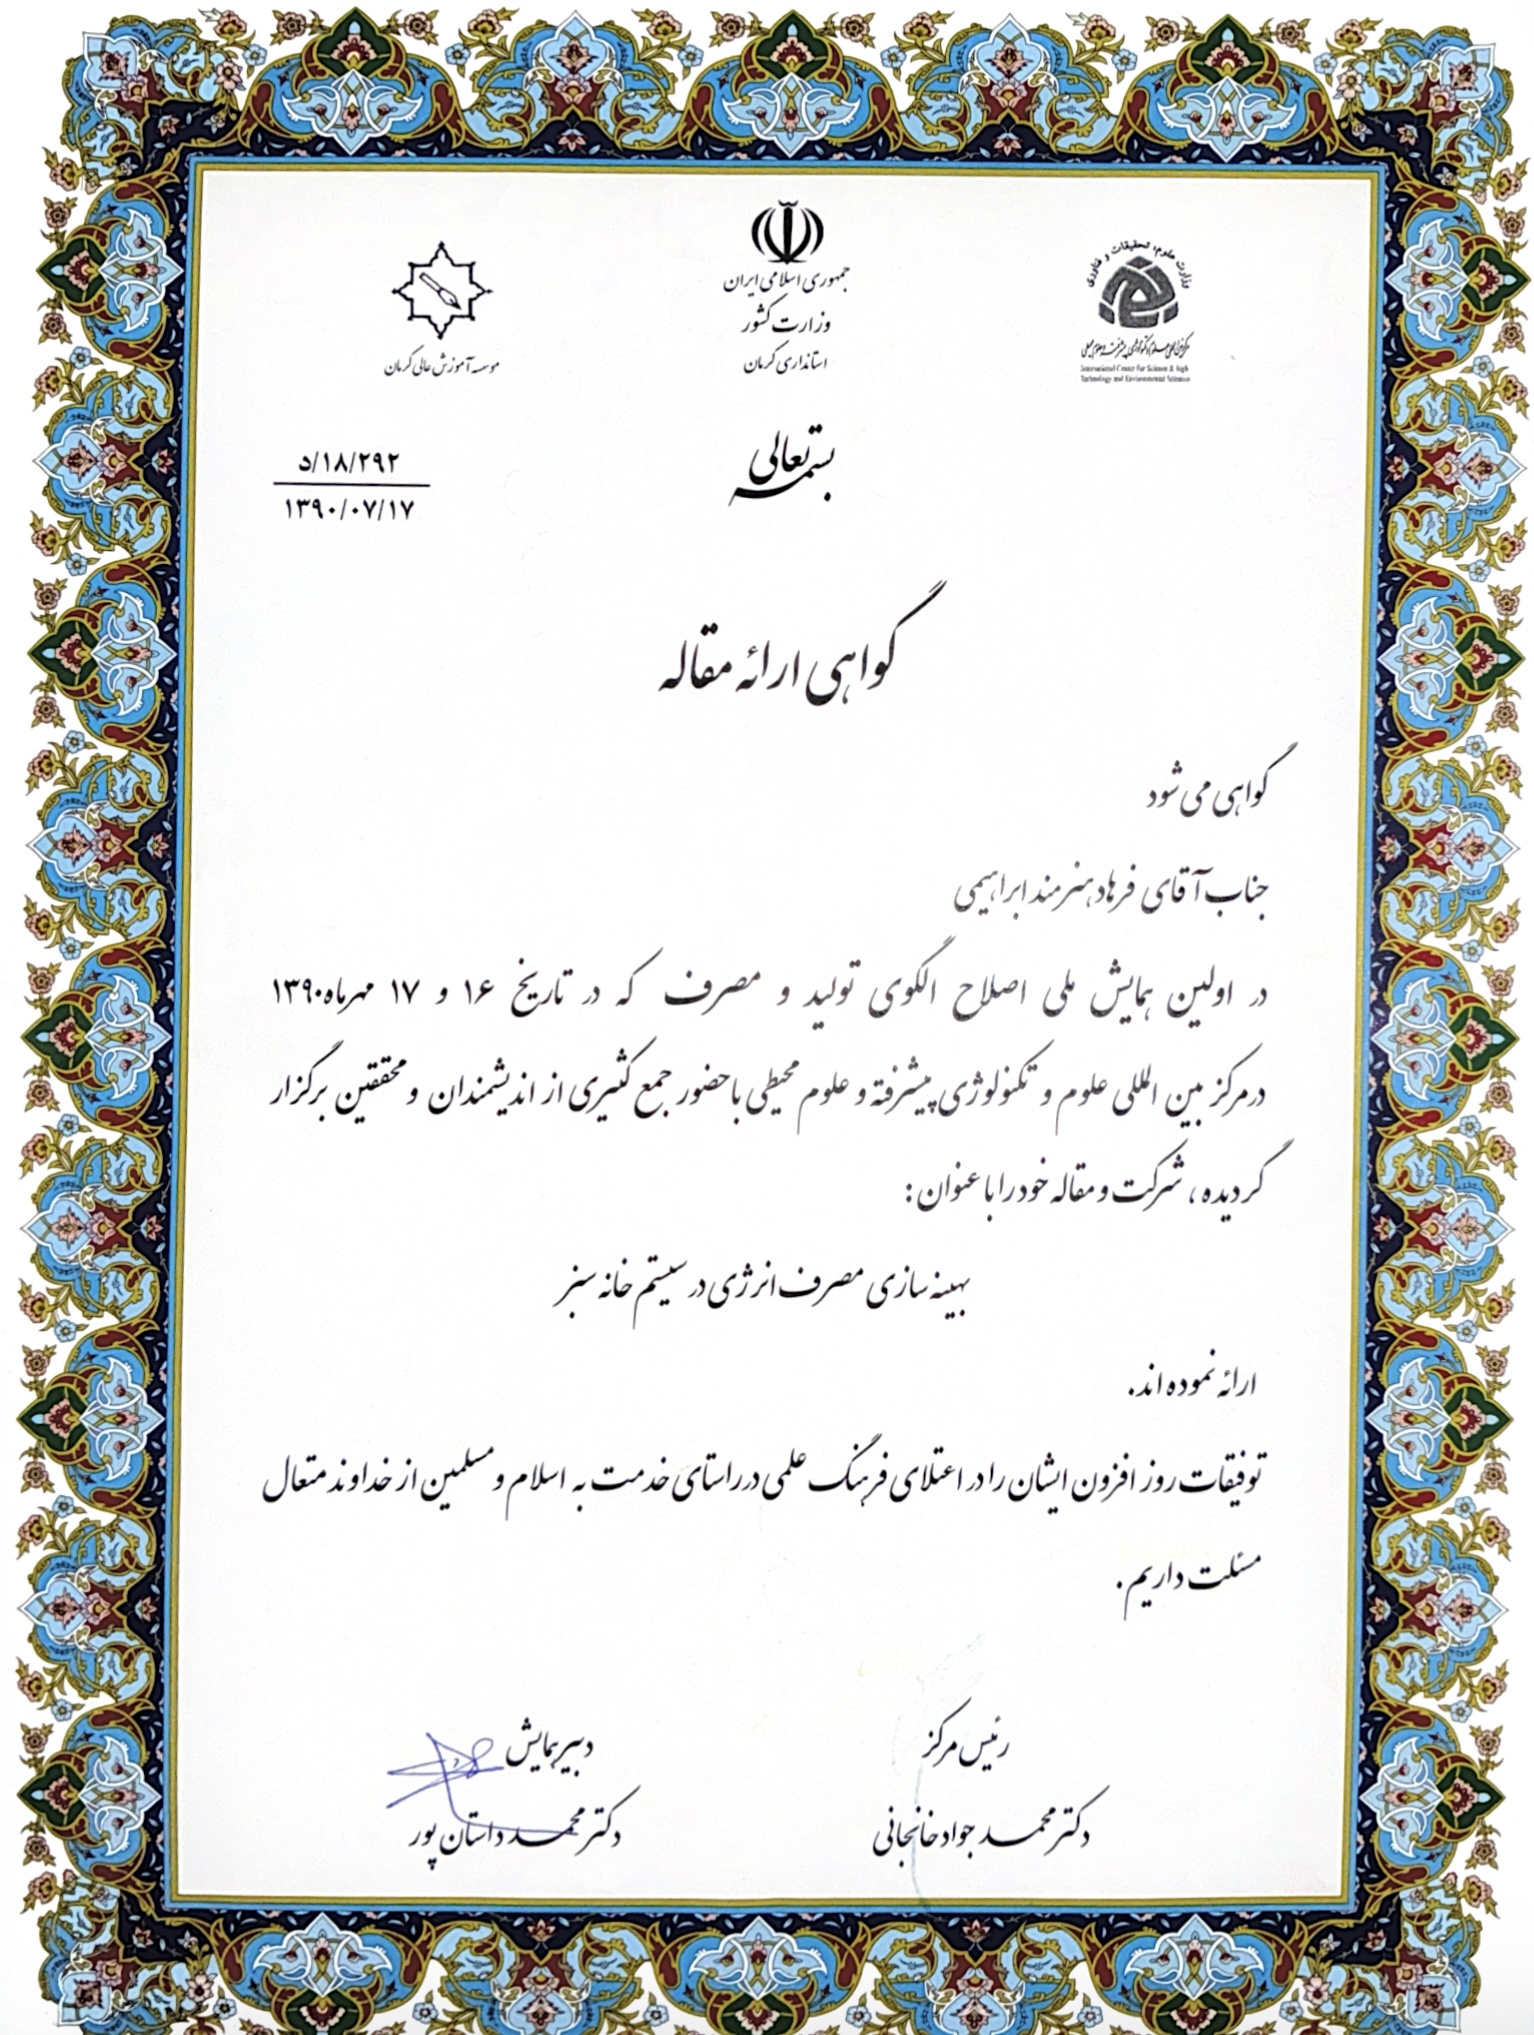 وزارت علوم، تحقیقات و فناوری
مرکز بین المللی علوم و تکنولوژی پیشرفته و علوم محیطی
International Center For Science & High
Technology and Environmental Sciences
جمهوری اسلامی ایران
وزارت کشور
استانداری کرمان
موسسه آموزش عالی کرمان
بسمه تعالی
۱۸/۲۹۲/د
۱۳۹۰/۰۷/۱۷
گواهی ارائه مقاله
گواهی می شود
جناب آقای فرهاد هنرمند ابراهیمی
در اولین همایش ملی اصلاح الگوی تولید و مصرف که در تاریخ ۱۶ و ۱۷ مهرماه ۱۳۹۰
در مرکز بین المللی علوم و تکنولوژی پیشرفته و علوم محیطی با حضور جمع کثیری از اندیشمندان و محققین برگزار
گردیده، شرکت و مقاله خود را با عنوان :
بهینه سازی مصرف انرژی در سیستم خانه سبز
ارائه نموده اند.
توفیقات روز افزون ایشان را در اعتلای فرهنگ علمی در راستای خدمت به اسلام و مسلمین از خداوند متعال
مسئلت داریم.
رئیس مرکز
دکتر محمد جواد خانجانی
دبیر همایش
دکتر محمد داستان پور